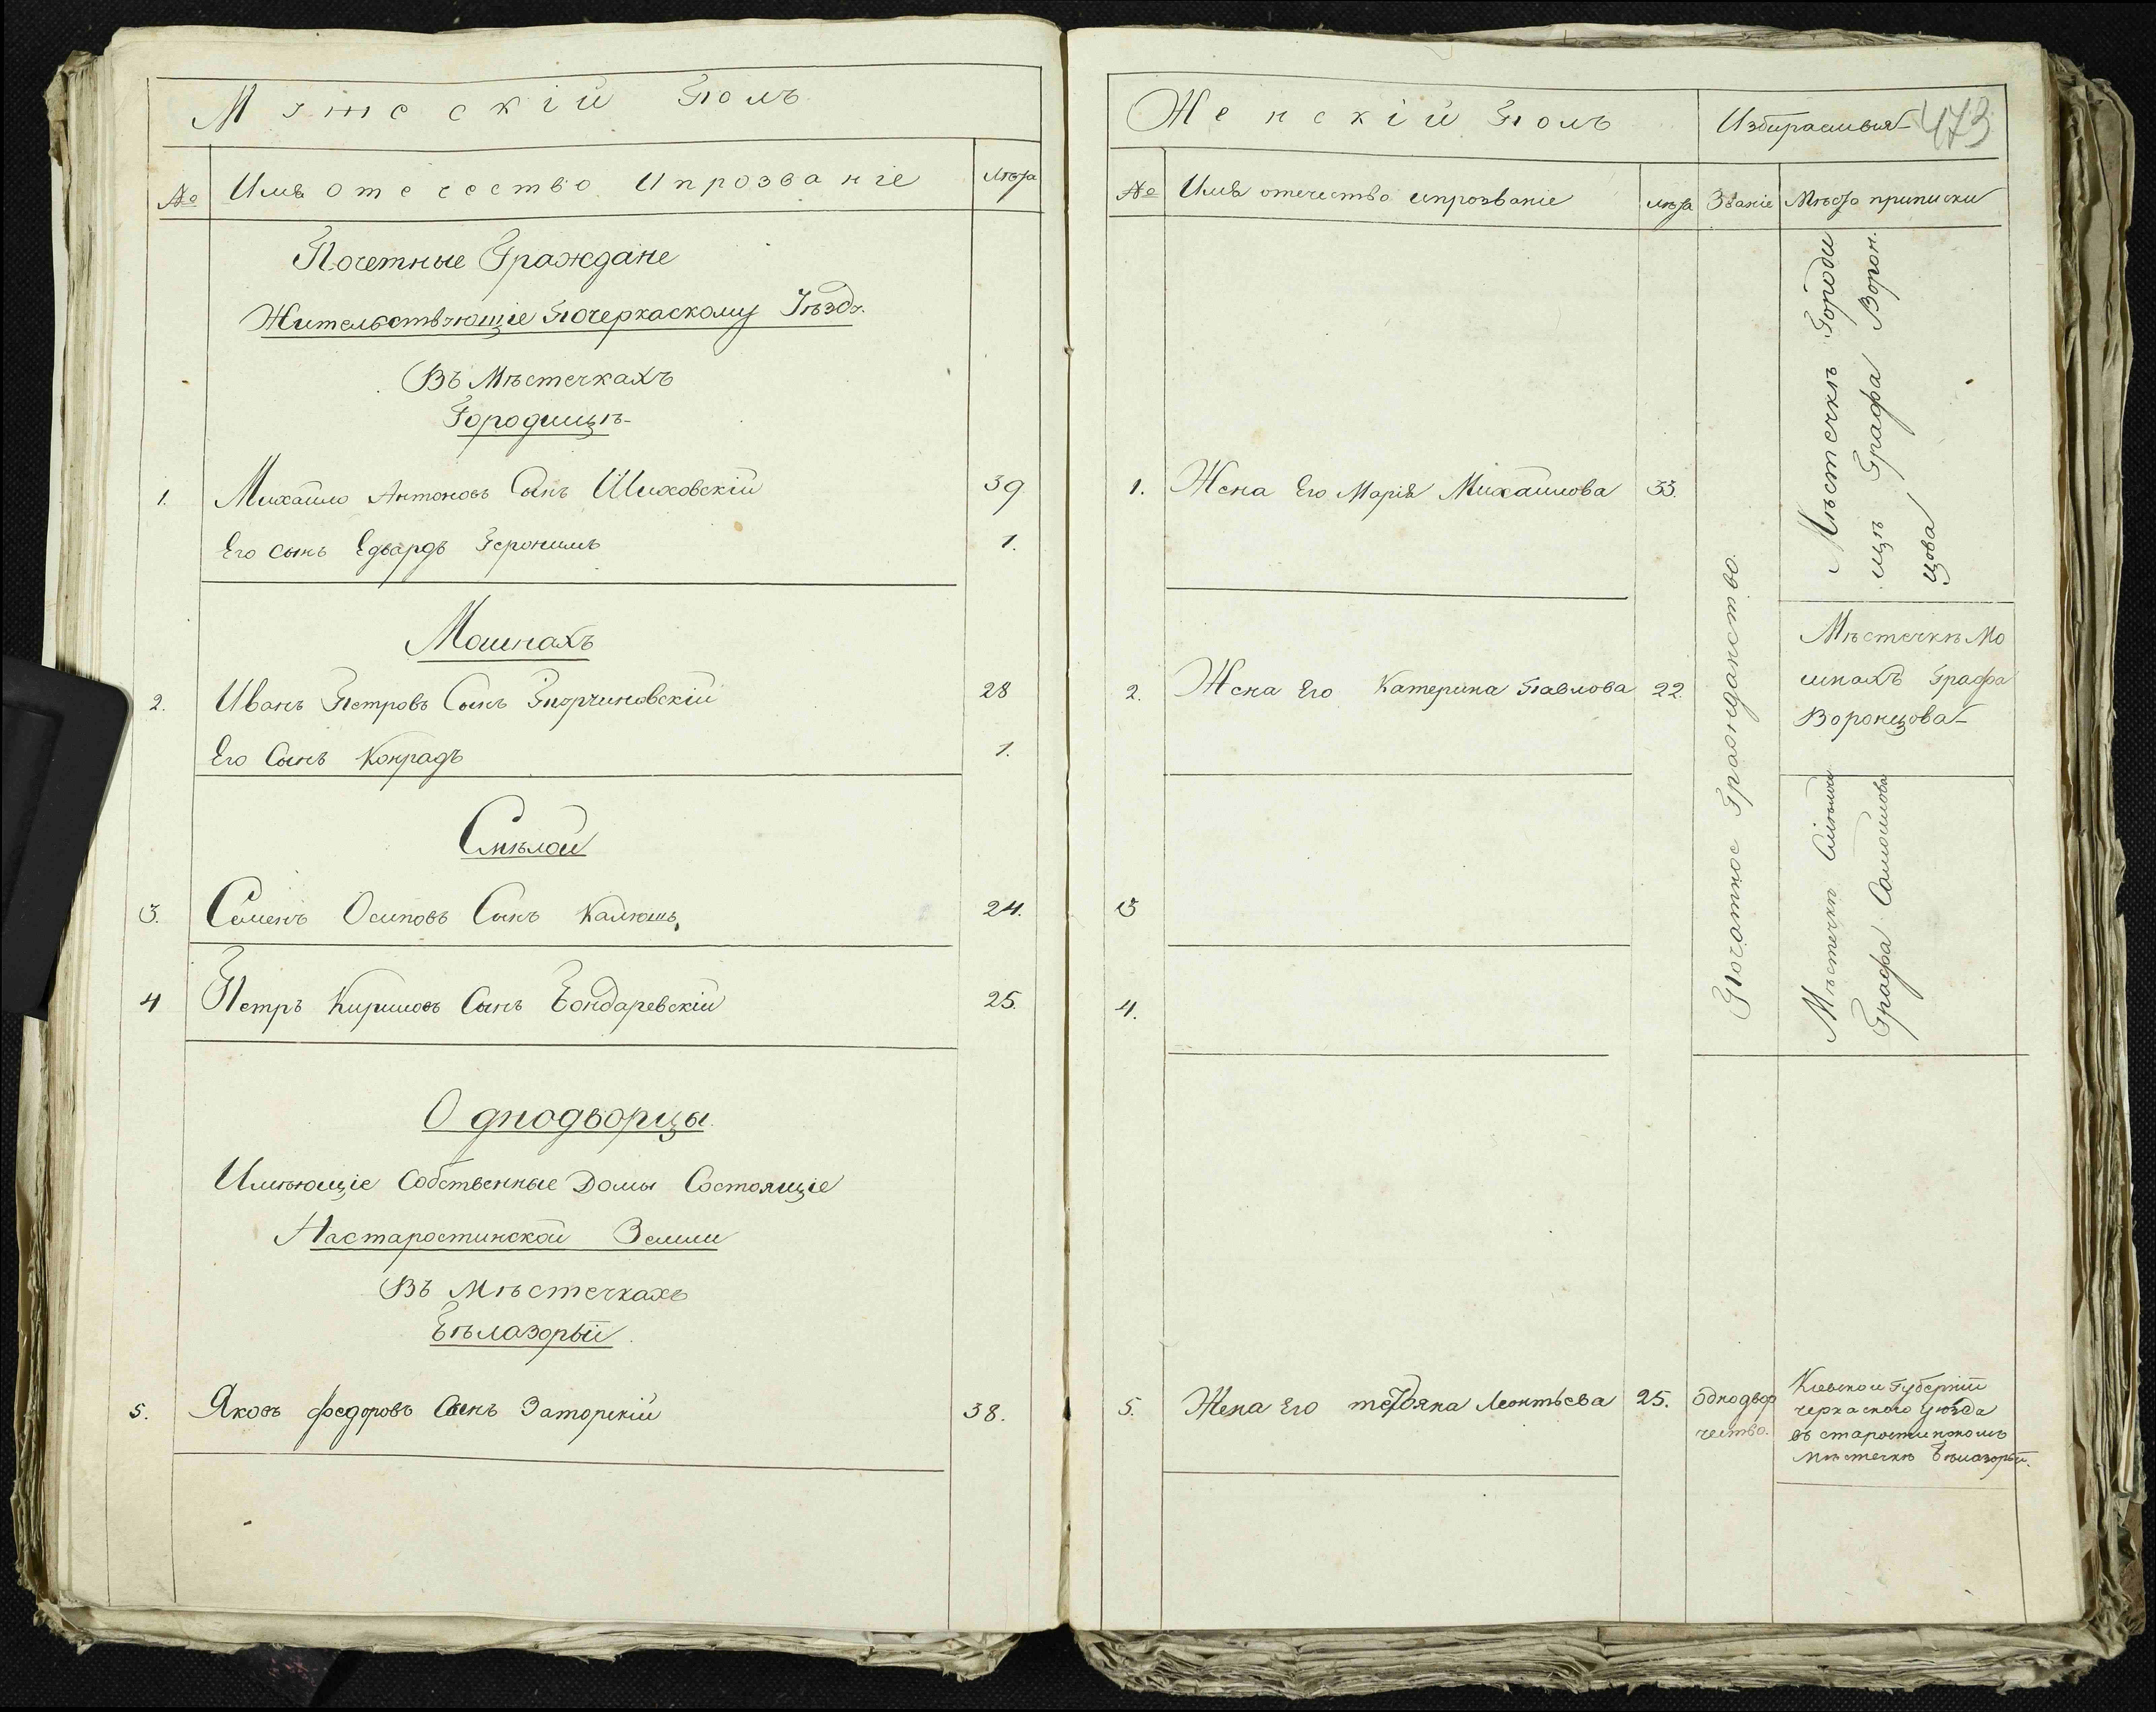 Мужескій Полъ
№ Имя отечество Ипрозваніе Лѣта
Почетные Граждане
Жительствующіе Почеркаскому Уѣзду.
Въ Мѣстечкахъ
Городищѣ
1. Михайло Антоновъ Сынъ Шиховскій 39
Его сынъ Едвардъ Геронимъ 1.
Мошнахъ
2. Иванъ Петровъ Сынъ 28
Его Сынъ Конрадъ 1.
Смѣлой
3. Семенъ Осиповъ Сынъ Калюшъ 24.
4 Петръ Кириловъ Сынъ Бондаревскій 25.
Однодворцы.
Имѣющіе Собственные Домы Состоящіе
Настаростинской Земли
Въ Мѣстечкахъ
Бѣлазорьи
5. Яковъ Федоровъ Сынъ Заторскій 38.
Женскій Полъ
Избираемыя
473
№ Имя отечество ипрозваніе лѣта Званіе Мѣсто приписки
1. Жена Его Марія Михайлова 33.
2. Жена Его Катерина Павлова 22.
3
4.
Почотное Гражданство.
Мѣстечкѣ Городи
щѣ Графа Ворон.
цова
Мѣстечкѣ Мо
шнахъ Графа
Воронцова
Мѣстечкѣ Смѣлой
Графа Самойлова
5. Жена Его Татояна Леонтьева 25.
Однодвор
чество.
Кіевской Губерніи
черкаского уѣзда
въ старостинскомъ
мѣстечкѣ Бѣлазорьи.